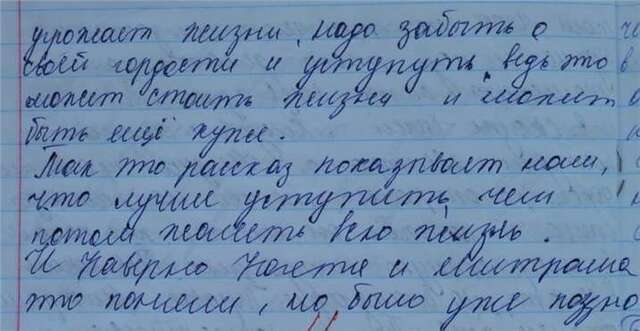 угрожает жизни, надо забыть о
своей гордости и уступуть, ведь это
может стоить жизни и может
быть ещё хуже.
Так это рассказ показывает нам,
что лучше уступить, чем
потом жалеть всю жизнь.
И наверно Настя и Митраша
это поняли, но было уже поздно